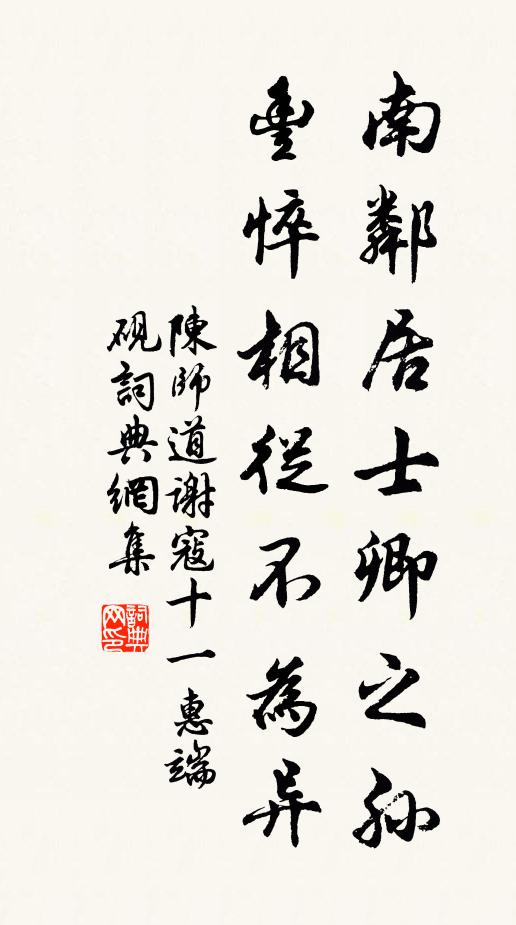 南鄰居士卿之孫
豐悴相從不為异
陳師道謝寇十一惠端
硯詞典網集
詞典
网印